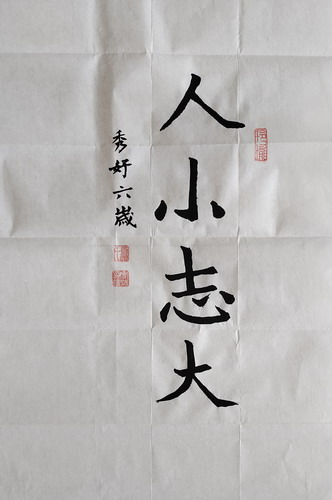 人小志大
秀妤六歲